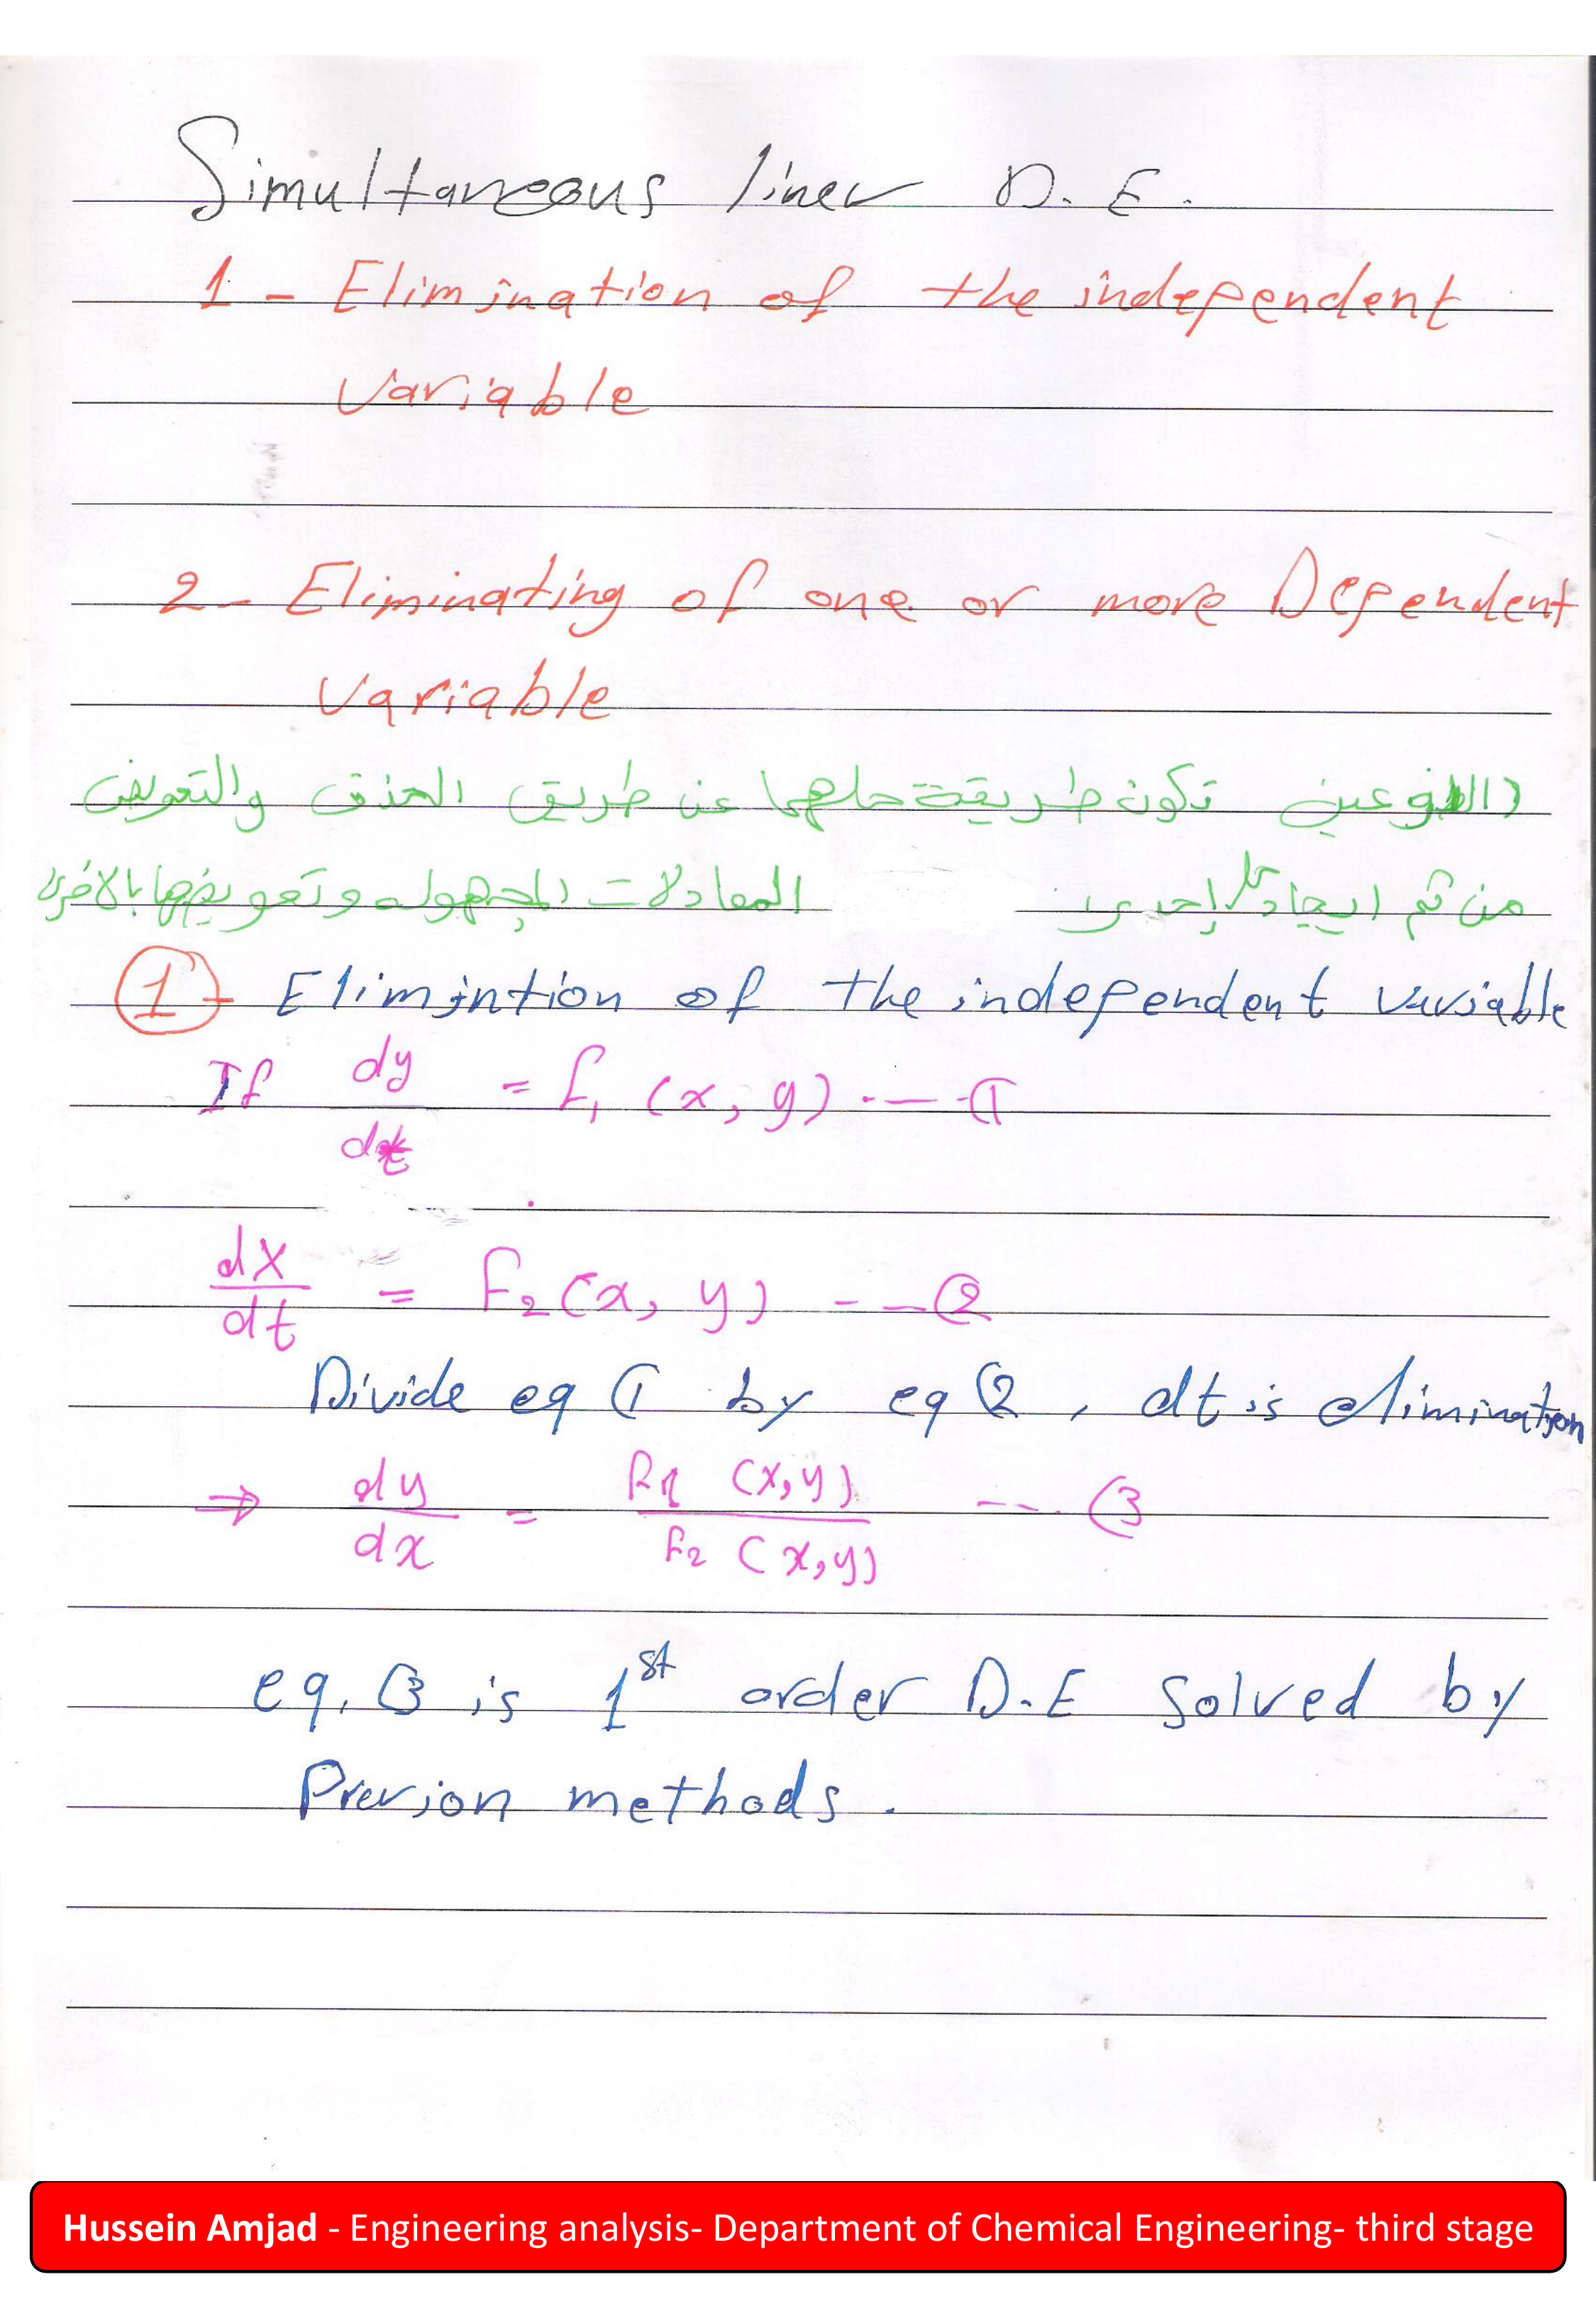 Simultaneous liner D.E.
1 - Elimination of the independent
variable
2 - Eliminating of one or more Dependent
variable
(النوعين تكون طريقة حلهما عن طريق الحذف والتعويض
من ثم ايجاد إحدى المعادلات المجهوله وتعويضها بالاخرى
1 - Elimintion of the independent variable
If dy/dt = f₁ (x, y) ---- ①
dx/dt = F₂(x, y) --- ②
Divide eq ① by eq ②, dt is elimination
⇒ dy/dx = F₁ (x,y) / F₂ (x,y) --- ③
eq. ③ is 1st order D.E solved by
Previon methods.
Hussein Amjad - Engineering analysis- Department of Chemical Engineering- third stage